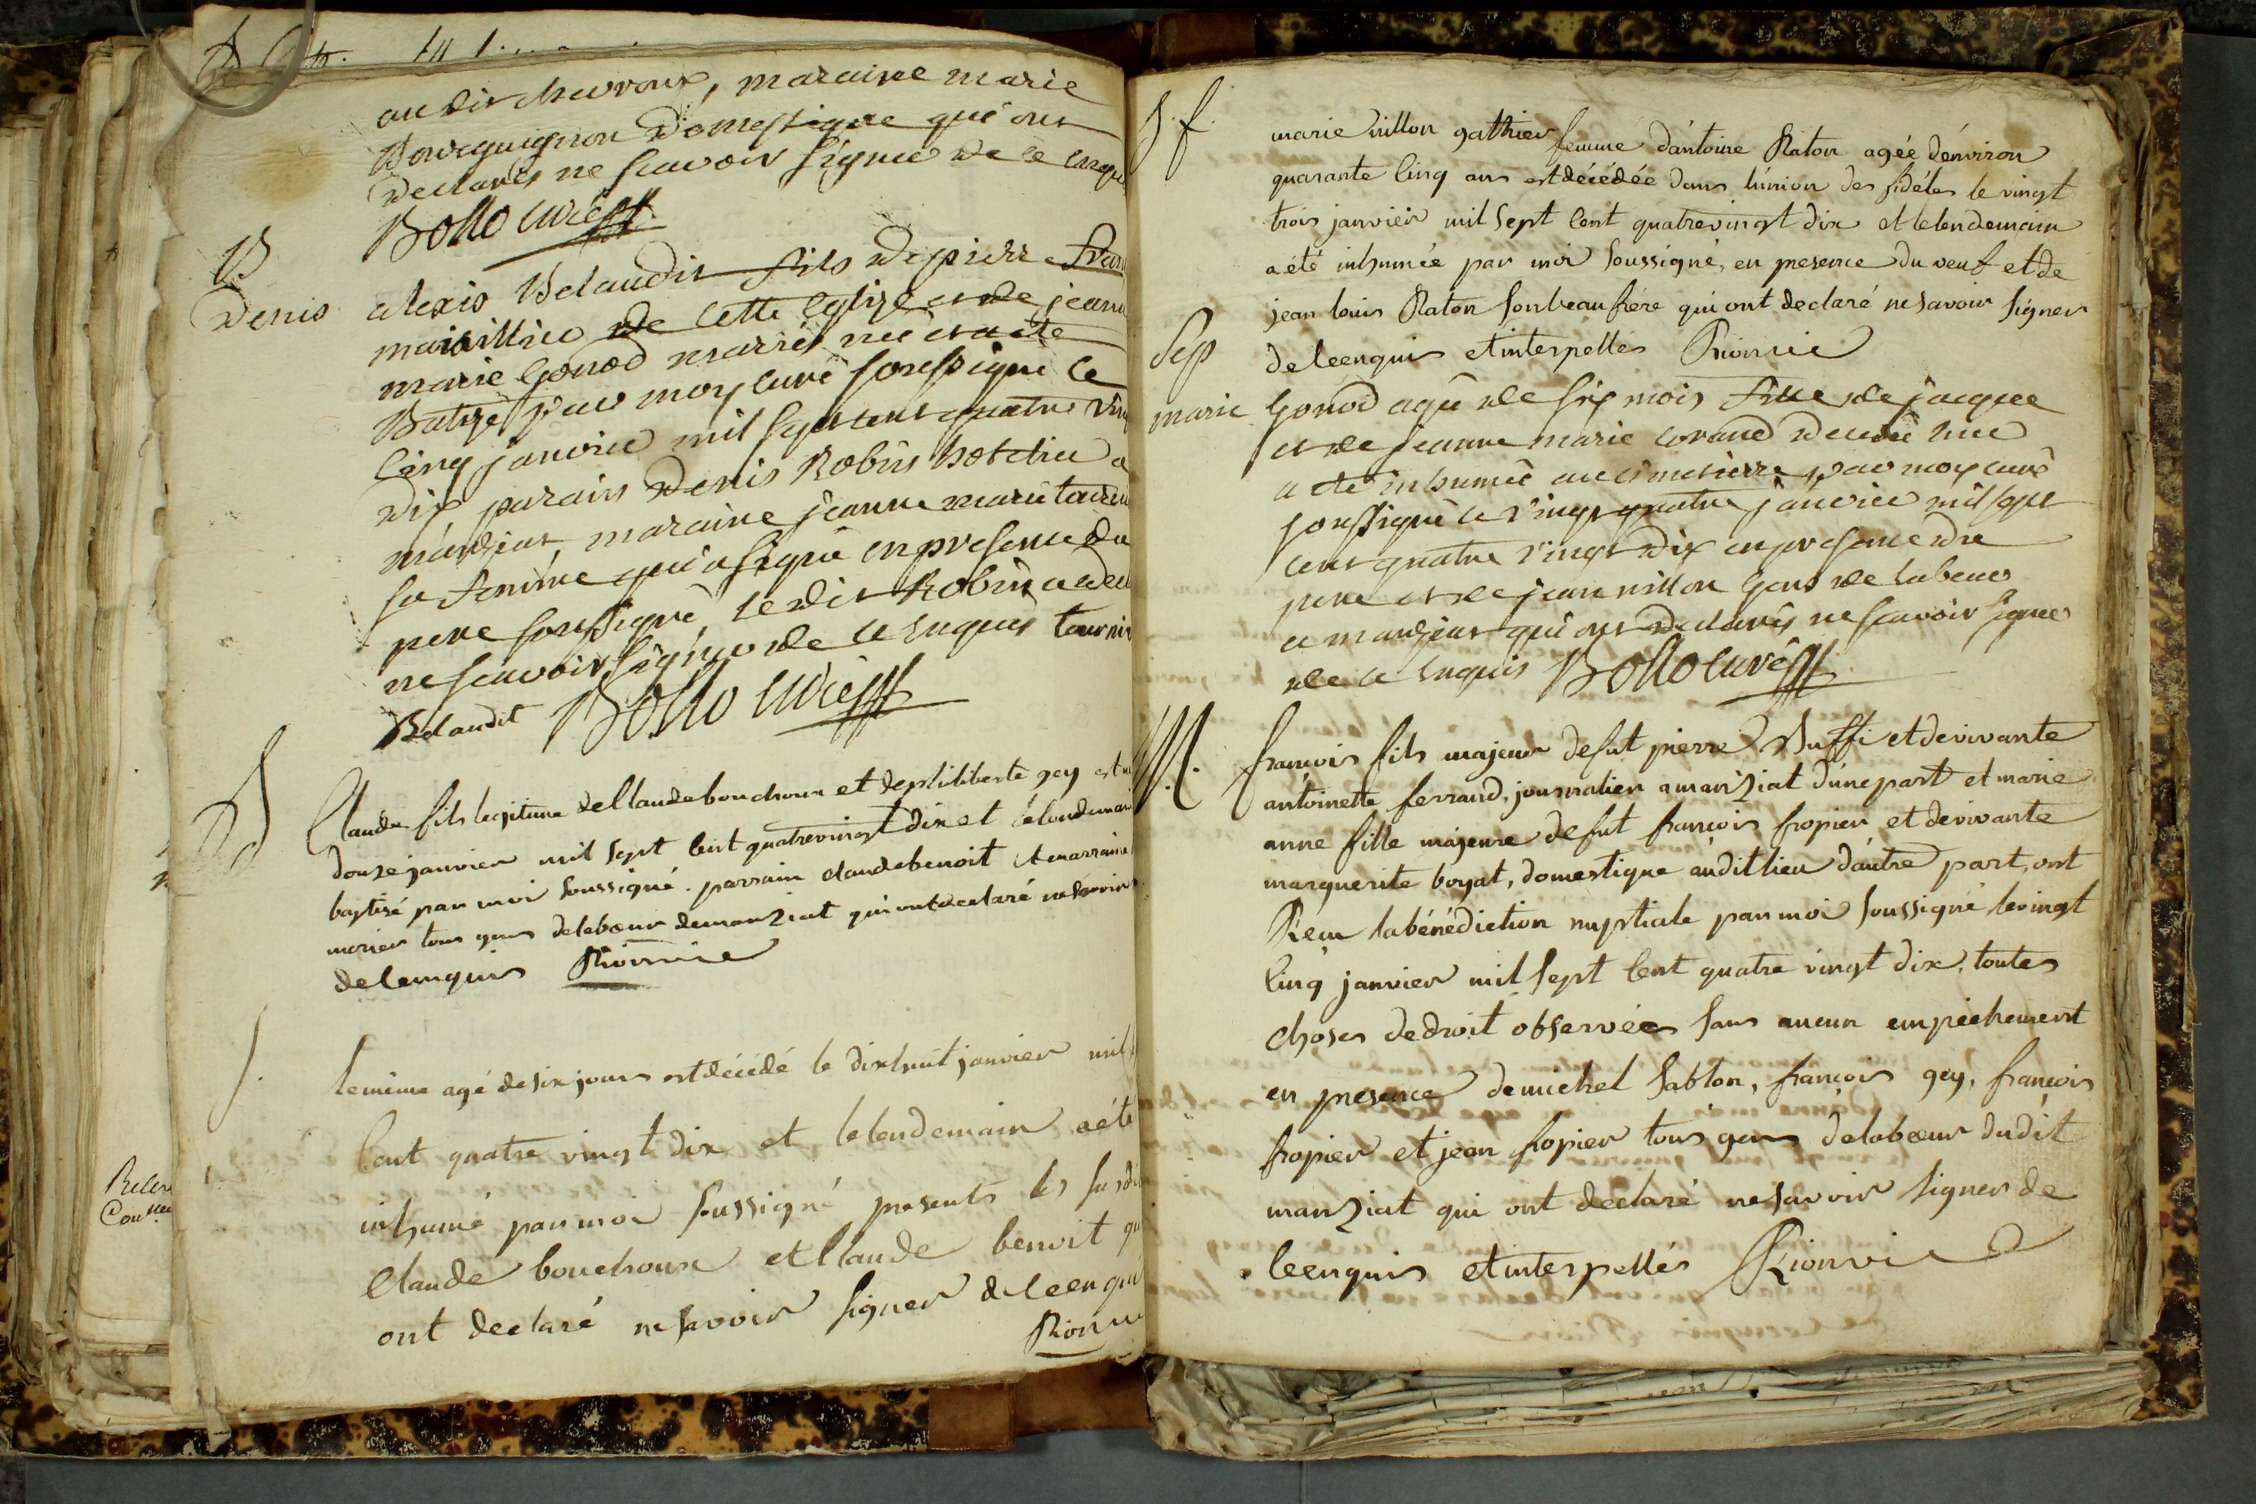 au dit chevroux, maraine marie
Bourguignon Domestique qui ont
declarés ne scavoir signer de ce enquis
Bollo curé
B
Denis alexis Belaudit fils de pierre fran
marie Gonod mariés né et a été
Batizé par moy curé soussigné le
cinq janvier mil sept cent quatre vin
dix parain Denis Robin hotelier a
manziat, maraine jeanne marie
sa femme qui a signé en presence du
pere soussigné, le dit Robin a decl
ne scavoir signer de ce enquis tournie
Belaudit Bollo curé
B
Claude fils legitime de Claude bouchoux et de philiberte gey est né
douze janvier mil sept cent quatrevingt dix et le lendemain
baptisé par moi soussigné. parrain claude benoit et marraine
tous gens de labeur de manziat qui ont declaré ne savoir
de ce enquis Rionvie
S.
le même agé de six jours est décédé le dix huit janvier mil
cent quatre vingt dix et le lendemain a été
inhumé par moi soussigné presents les susdi
Claude bouchoux et Claude benoit qui
ont declaré ne savoir signer de ce enqui
Rionvie
S. f.
marie nillon gathier femme d'antoine Raton agée d'environ
quarante cinq ans est décédée dans l'union des fidéles le vingt
trois janvier mil sept cent quatrevingt dix et le lendemain
a été inhumée par moi soussigné, en presence du veuf et de
jean louis Raton son beau frére qui ont declaré ne savoir signer
de ce enquis et interpellés Rionvie
Sep
marie Gonod agée de six mois fille de jacque
et de jeanne marie
a été inhumée au cimetierre par moy curé
soussigné le vingt quatre janvier mil sept
cent quatre vingt dix en presence du
pere et de jean nillon gens de labeur
a manziat qui ont declarés ne scavoir signer
de ce enquis Bollo curé
M.
françois fils majeur de fut pierre Buffi et de vivante
antoinette ferraud, journalier a manziat d'une part et marie
anne fille majeure de fut françois fropier et de vivante
marguerite boyat, domestique au dit lieu d'autre part, ont
Reçu la bénédiction nuptiale par moi soussigné le vingt
cinq janvier mil sept cent quatre vingt dix, toutes
choses de droit observées sans aucun empêchement
en presence de michel sablon, françois gey, françois
fropier et jean fropier tous gens de labeur du dit
manziat qui ont declaré ne savoir signer de
ce enquis et interpellés Rionvie